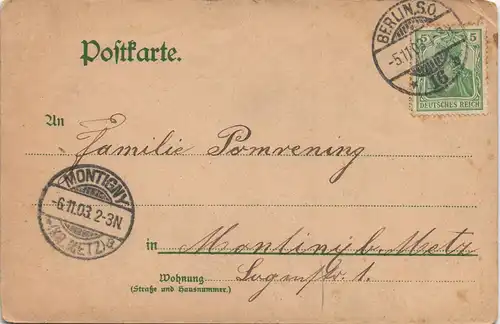 BERLIN.S.O.
-5.11.03
Postkarte.
5 5
DEUTSCHES REICH
An
Familie Pomrening
MONTIGNY
-6.11.03. 2-3N.
(KR. METZ)
in Montiny b. Metz
Wohnung
(Straße und Hausnummer.)